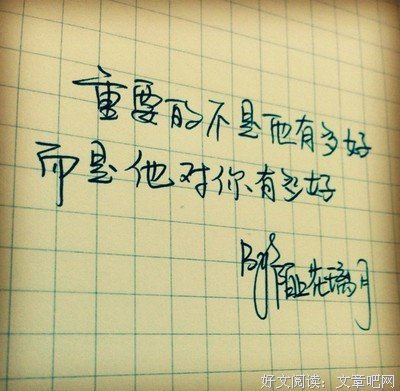 重要的不是他有多好
而是他对你有多好
By 月
好文阅读：文章吧网